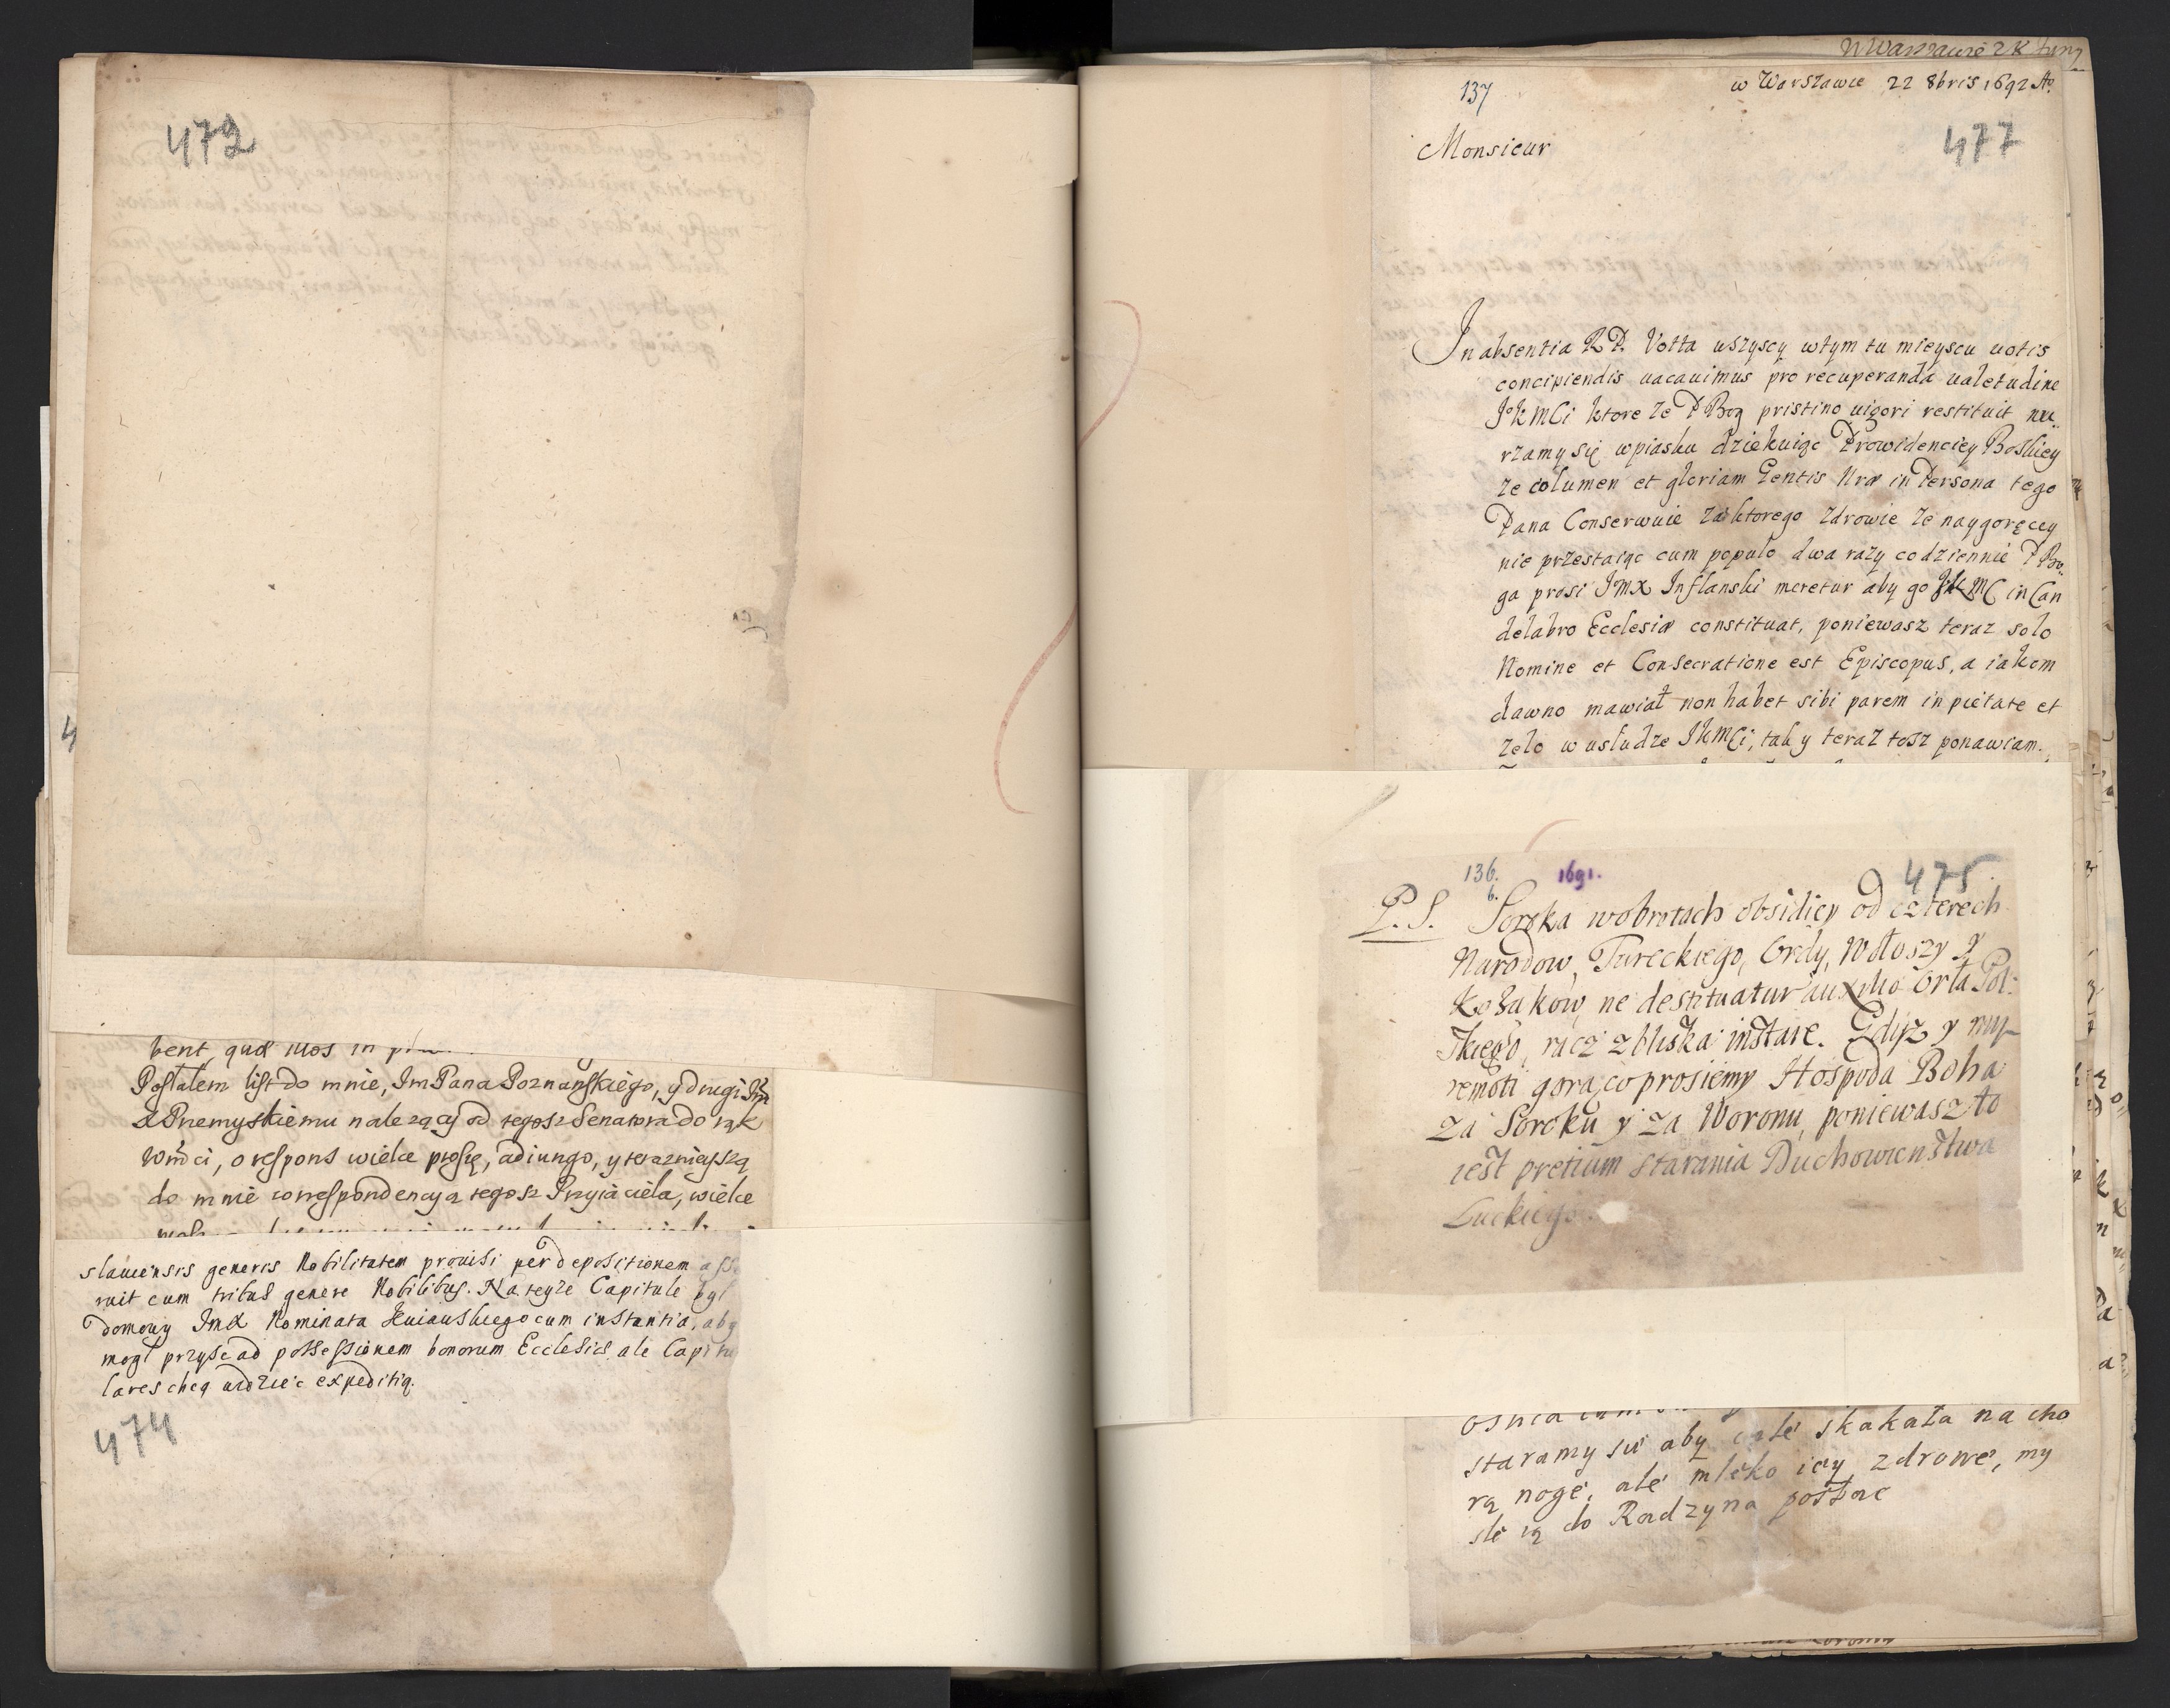 472
bent, quæ mos in
Posłałem list do mnie, Im Pana Poznanskiego, y drugi Im
X Przemyskiemu nalezący od tegosz Senatora do rąk
Wmci, o respons wielce proszę, adiungo, y terazniejszą
do mnie correspondencyą tegosz Przyiaciela, wielce
slauiensis generis Nobilitatem prouisi per depositionem
ruit cum tribus genere Nobilibus. Na teyze Capitule był
domowy ImX Nominata Kuiauskiego cum instantia, aby
mogł przysc ad possessionem bonorum Ecclesiæ ale Capitu
lares chcą widziec expeditią.
474
W Warszawie
137
w Warszawie 22 8bris 1692 Ao
477
Monsieur
In absentia R.P. Votta wszyscy w tym tu mieyscu uotis
concipiendis uacauimus pro recuperanda ualetudine
JKMCi ktore ze P Bog pristino uigori restituit nu
rzamy się w piasku dziekuiąc Prowidenciey Boskiey
ze columen et gloriam Gentis Nræ in Persona tego
Pana Conserwuie za ktorego zdrowie ze naygoręcey
nie przestaiąc cum populo dwa razy codziennie P Bo
ga prosi JmX Inflanski meretur aby go JKMC in Can
delabro Ecclesiæ constituat, poniewasz teraz solo
Nomine et Consecratione est Episcopus, a iakom
dawno mawiał non habet sibi parem in pietate et
zelo w usłudze JKMCi, tak y teraz tosz ponawiam.
136.
6.
1691.
475.
P.S. Soroka w obrotach obsidiey od czterech
Narodow, Tureckiego, Ordy, Wołoszy y
Kozakow, ne destituatur auxilio Orła Pol:
skiego, racz z bliska instare. Gdysz y my
remoti gorąco prosiemy Hospoda Boha
za Soroku y za Woronu, poniewasz to
iest pretium starania Duchowienstwa
Łuckiego.
staramy sie aby skakała na cho
rą nogę, ale mleko iey zdrowe, my
slę ią do Radzyna posłac